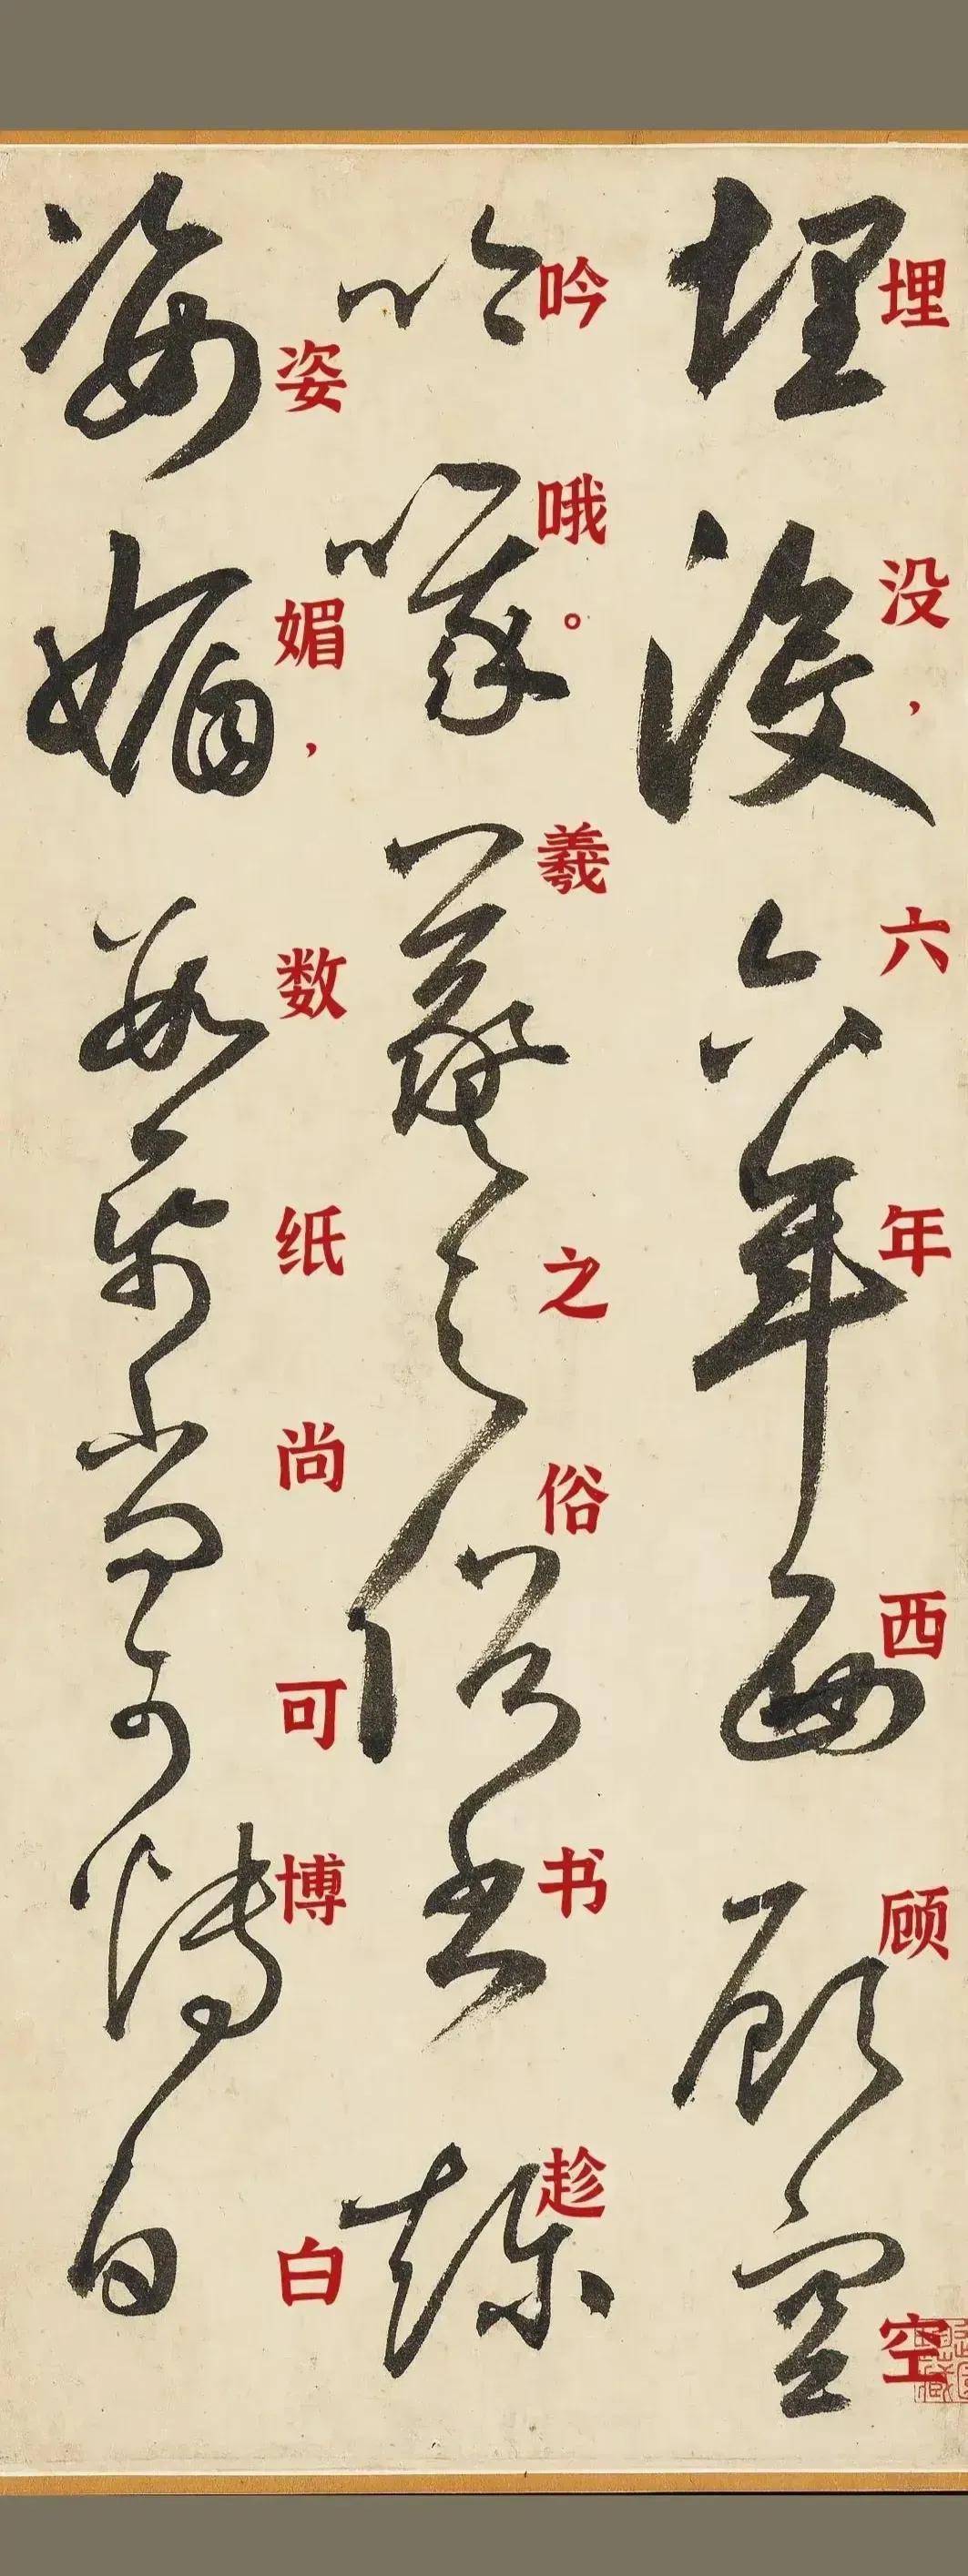 埋没，六年西顾空
吟哦。羲之俗书趁
姿媚，数纸尚可博白